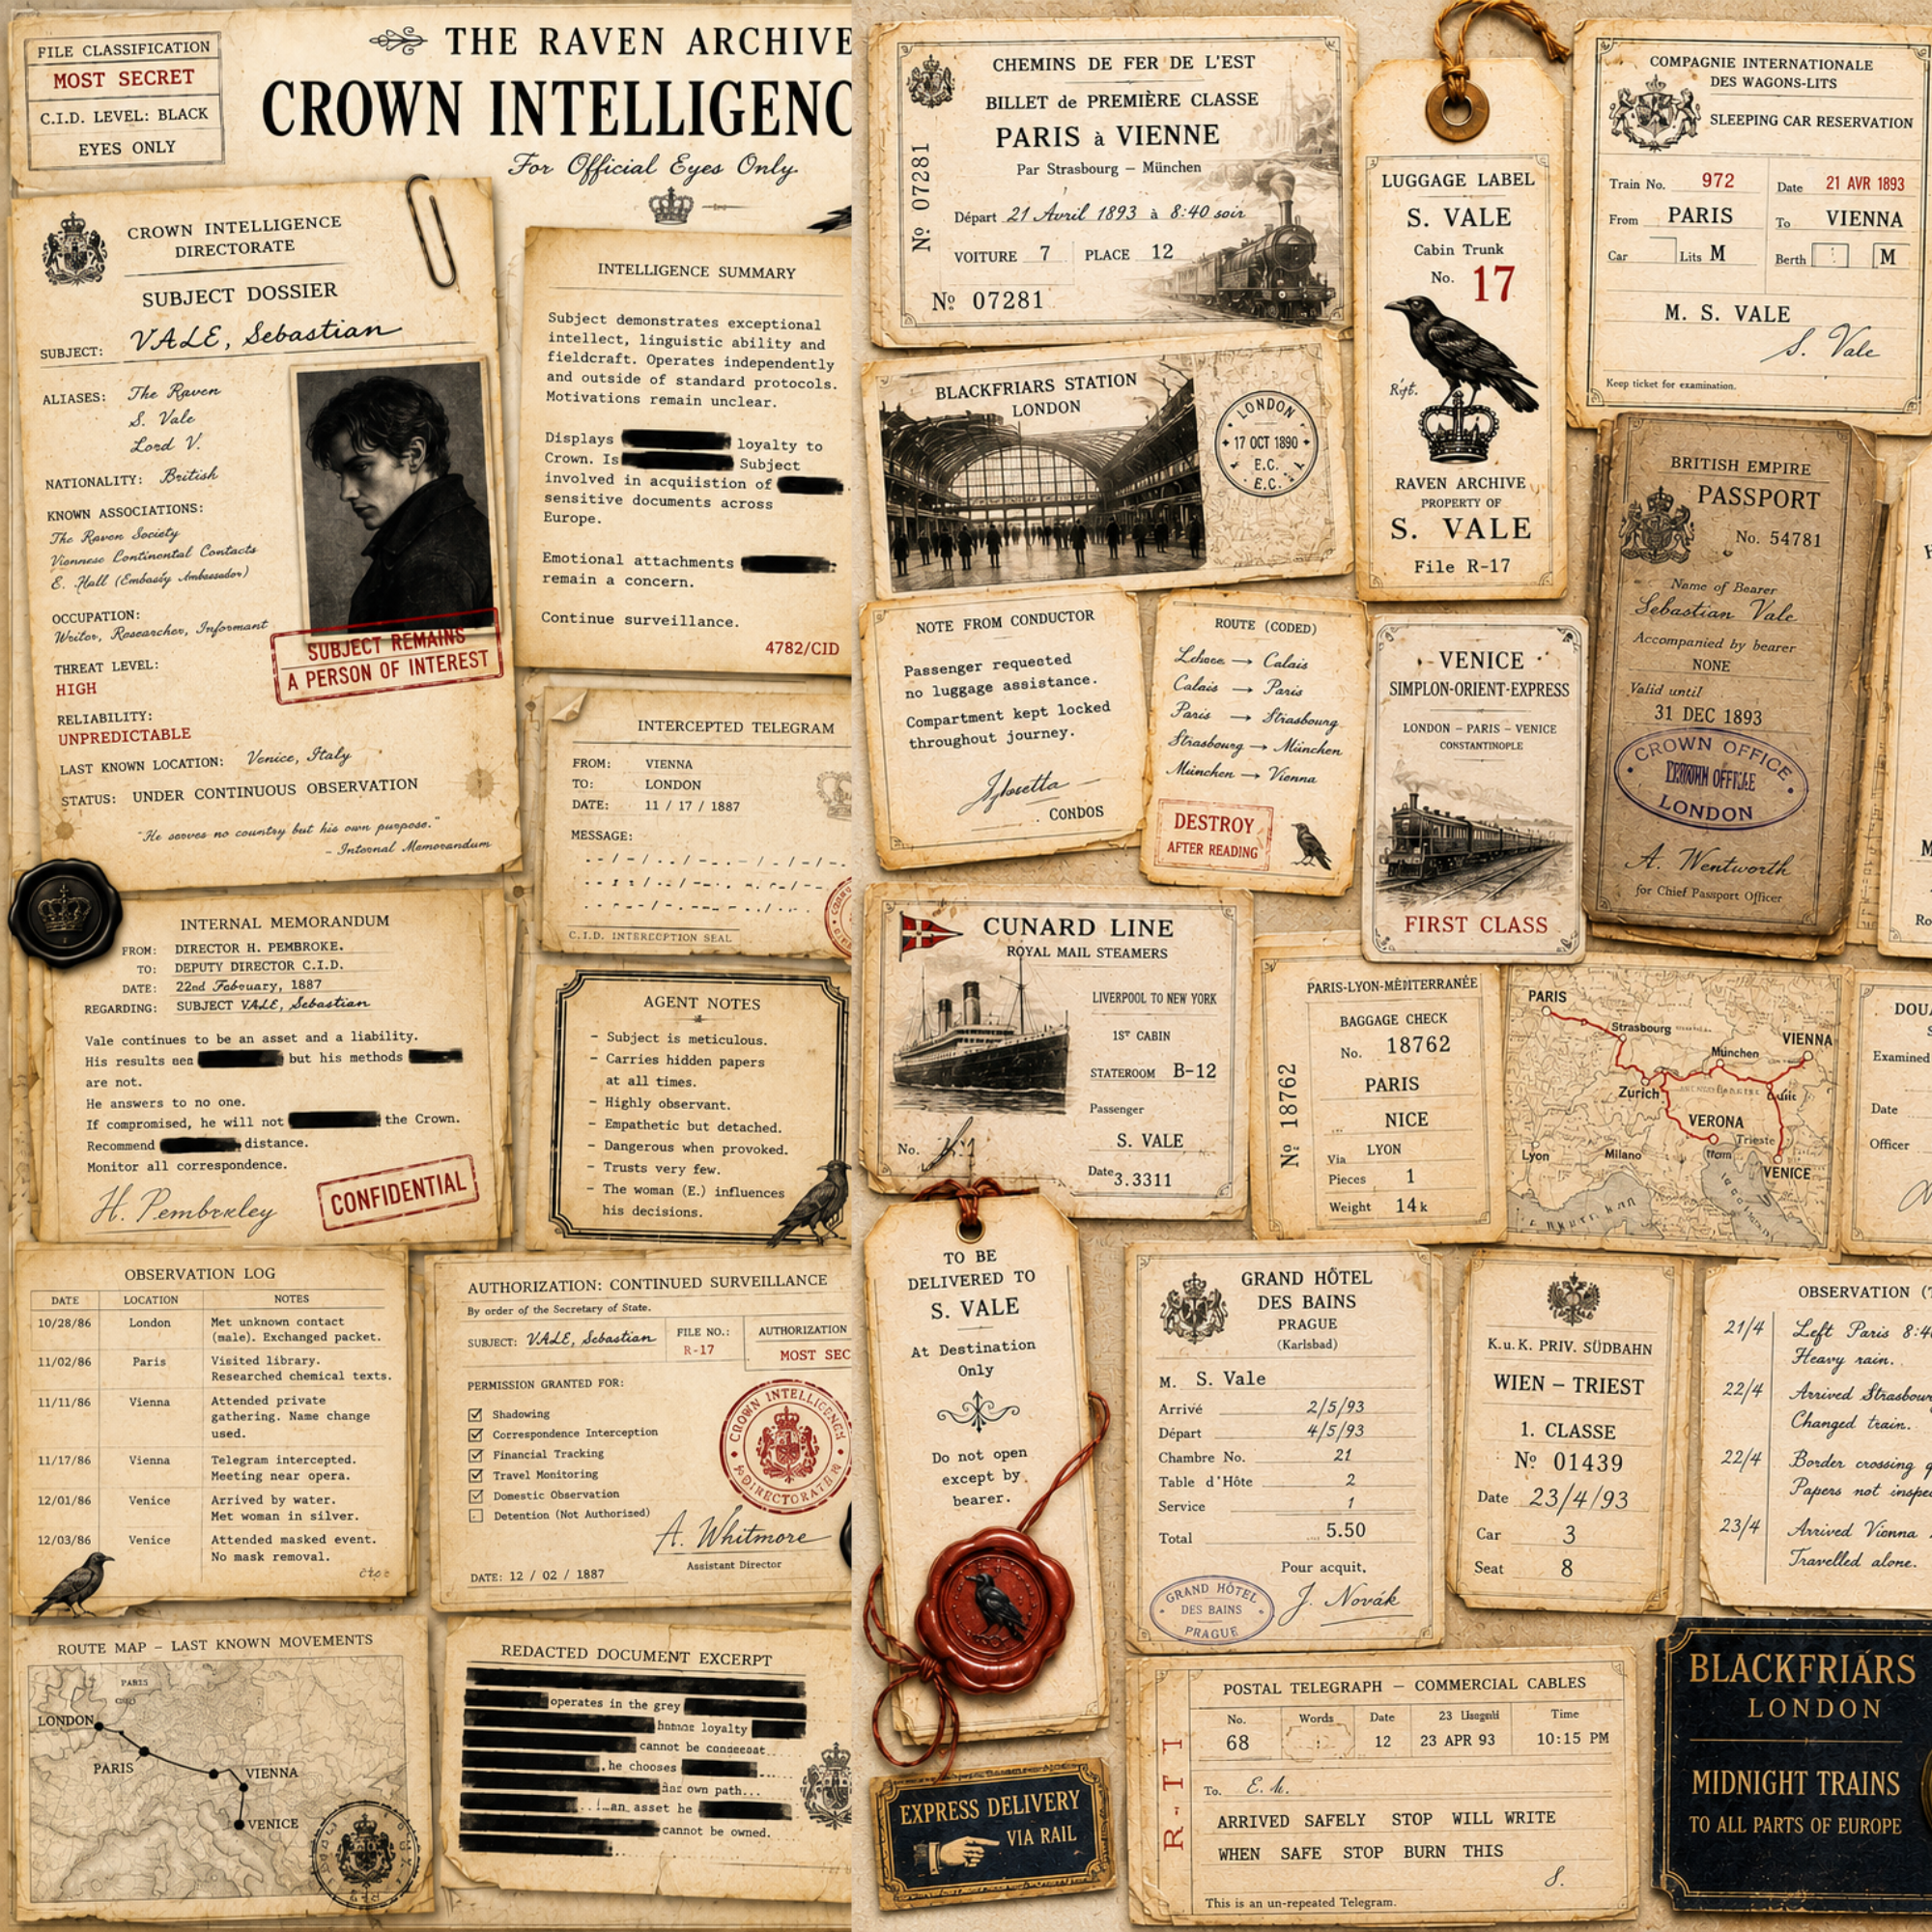 FILE CLASSIFICATION
MOST SECRET
C.I.D. LEVEL: BLACK
EYES ONLY
THE RAVEN ARCHIVE
CROWN INTELLIGENC
For Official Eyes Only
CROWN INTELLIGENCE
DIRECTORATE
SUBJECT DOSSIER
SUBJECT: VALE, Sebastian
ALIASES: The Raven
S. Vale
Lord V.
NATIONALITY: British
KNOWN ASSOCIATIONS:
The Raven Society
Viennese Continental Contacts
E. Hall (Embassy Ambassador)
OCCUPATION:
Writer, Researcher, Informant
THREAT LEVEL:
HIGH
RELIABILITY:
UNPREDICTABLE
LAST KNOWN LOCATION: Venice, Italy
STATUS: UNDER CONTINUOUS OBSERVATION
"He serves no country but his own purpose."
- Internal Memorandum
SUBJECT REMAINS
A PERSON OF INTEREST
INTELLIGENCE SUMMARY
Subject demonstrates exceptional
intellect, linguistic ability and
fieldcraft. Operates independently
and outside of standard protocols.
Motivations remain unclear.
Displays loyalty to
Crown. Is Subject
involved in acquiistion of
sensitive documents across
Europe.
Emotional attachments
remain a concern.
Continue surveillance.
4782/CID
INTERCEPTED TELEGRAM
FROM: VIENNA
TO: LONDON
DATE: 11 / 17 / 1887
MESSAGE:
C.I.D. INTERCEPTION SEAL
INTERNAL MEMORANDUM
FROM: DIRECTOR H. PEMBROKE.
TO: DEPUTY DIRECTOR C.I.D.
DATE: 22nd February, 1887
REGARDING: SUBJECT VALE, Sebastian
Vale continues to be an asset and a liability.
His results but his methods
are not.
He answers to no one.
If compromised, he will not the Crown.
Recommend distance.
Monitor all correspondence.
H. Pembrkley
CONFIDENTIAL
AGENT NOTES
- Subject is meticulous.
- Carries hidden papers
at all times.
- Highly observant.
- Empathetic but detached.
- Dangerous when provoked.
- Trusts very few.
- The woman (E.) influences
his decisions.
OBSERVATION LOG
DATE LOCATION NOTES
10/28/86 London Met unknown contact
(male). Exchanged packet.
11/02/86 Paris Visited library.
Researched chemical texts.
11/11/86 Vienna Attended private
gathering. Name change
used.
11/17/86 Vienna Telegram intercepted.
Meeting near opera.
12/01/86 Venice Arrived by water.
Met woman in silver.
12/03/86 Venice Attended masked event.
No mask removal.
AUTHORIZATION: CONTINUED SURVEILLANCE
By order of the Secretary of State.
SUBJECT: VALE, Sebastian
FILE NO.:
R-17
AUTHORIZATION
MOST SEC
PERMISSION GRANTED FOR:
Shadowing
Correspondence Interception
Financial Tracking
Travel Monitoring
Domestic Observation
Detention (Not Authorized)
CROWN INTELLIGENCE
DIRECTORATE
A. Whitmore
Assistant Director
DATE: 12 / 02 / 1887
ROUTE MAP – LAST KNOWN MOVEMENTS
PARIS
LONDON
PARIS
VIENNA
VENICE
REDACTED DOCUMENT EXCERPT
operates in the grey
loyalty
cannot be
he chooses
own path...
an asset he
cannot be owned.
CHEMINS DE FER DE L'EST
BILLET de PREMIÈRE CLASSE
PARIS à VIENNE
Par Strasbourg – München
Départ 21 Avril 1893 à 8:40 soir
VOITURE 7 PLACE 12
Nº 07281
Nº 07281
BLACKFRIARS STATION
LONDON
LONDON
17 OCT 1890
E.C.
E.C.
LUGGAGE LABEL
S. VALE
Cabin Trunk
No. 17
RAVEN ARCHIVE
PROPERTY OF
S. VALE
File R-17
COMPAGNIE INTERNATIONALE
DES WAGONS-LITS
SLEEPING CAR RESERVATION
Train No. 972 Date 21 AVR 1893
From PARIS To VIENNA
Car Lits M Berth M
M. S. VALE
S. Vale
Keep ticket for examination.
BRITISH EMPIRE
PASSPORT
No. 54781
Name of Bearer
Sebastian Vale
Accompanied by bearer
NONE
Valid until
31 DEC 1893
CROWN OFFICE
OFFICE
LONDON
A. Wentworth
for Chief Passport Officer
NOTE FROM CONDUCTOR
Passenger requested
no luggage assistance.
Compartment kept locked
throughout journey.
CONDOS
ROUTE (CODED)
→ Calais
Calais → Paris
Paris → Strasbourg
Strasbourg → München
München → Vienna
DESTROY
AFTER READING
VENICE
SIMPLON-ORIENT-EXPRESS
LONDON – PARIS – VENICE
CONSTANTINOPLE
FIRST CLASS
CUNARD LINE
ROYAL MAIL STEAMERS
LIVERPOOL TO NEW YORK
1ST CABIN
STATEROOM B-12
Passenger
S. VALE
No.
Date 3.3311
PARIS-LYON-MÉDITERRANÉE
BAGGAGE CHECK
No. 18762
PARIS
NICE
Via LYON
Pieces 1
Weight 14k
Nº 18762
PARIS
Strasbourg
München
VIENNA
Zurich
VERONA
Trieste
Lyon
Milano
VENICE
DOU
Examined
Date
Officer
TO BE
DELIVERED TO
S. VALE
At Destination
Only
Do not open
except by
bearer.
GRAND HÔTEL
DES BAINS
PRAGUE
(Karlsbad)
M. S. Vale
Arrivé 2/5/93
Départ 4/5/93
Chambre No. 21
Table d'Hôte 2
Service 1
Total 5.50
Pour acquit,
J. Novák
GRAND HÔTEL
DES BAINS
PRAGUE
K.u.K. PRIV. SÜDBAHN
WIEN – TRIEST
1. CLASSE
Nº 01439
Date 23/4/93
Car 3
Seat 8
OBSERVATION (T
21/4 Left Paris 8:4
Heavy rain.
22/4 Arrived Strasbour
Changed train.
22/4 Border crossing
Papers not inspe
23/4 Arrived Vienna
Travelled alone.
EXPRESS DELIVERY
VIA RAIL
POSTAL TELEGRAPH – COMMERCIAL CABLES
No. Words Date 23 Time
68 12 23 APR 93 10:15 PM
To.
ARRIVED SAFELY STOP WILL WRITE
WHEN SAFE STOP BURN THIS
S.
This is an un-repeated Telegram.
R-T-T
BLACKFRIARS
LONDON
MIDNIGHT TRAINS
TO ALL PARTS OF EUROPE